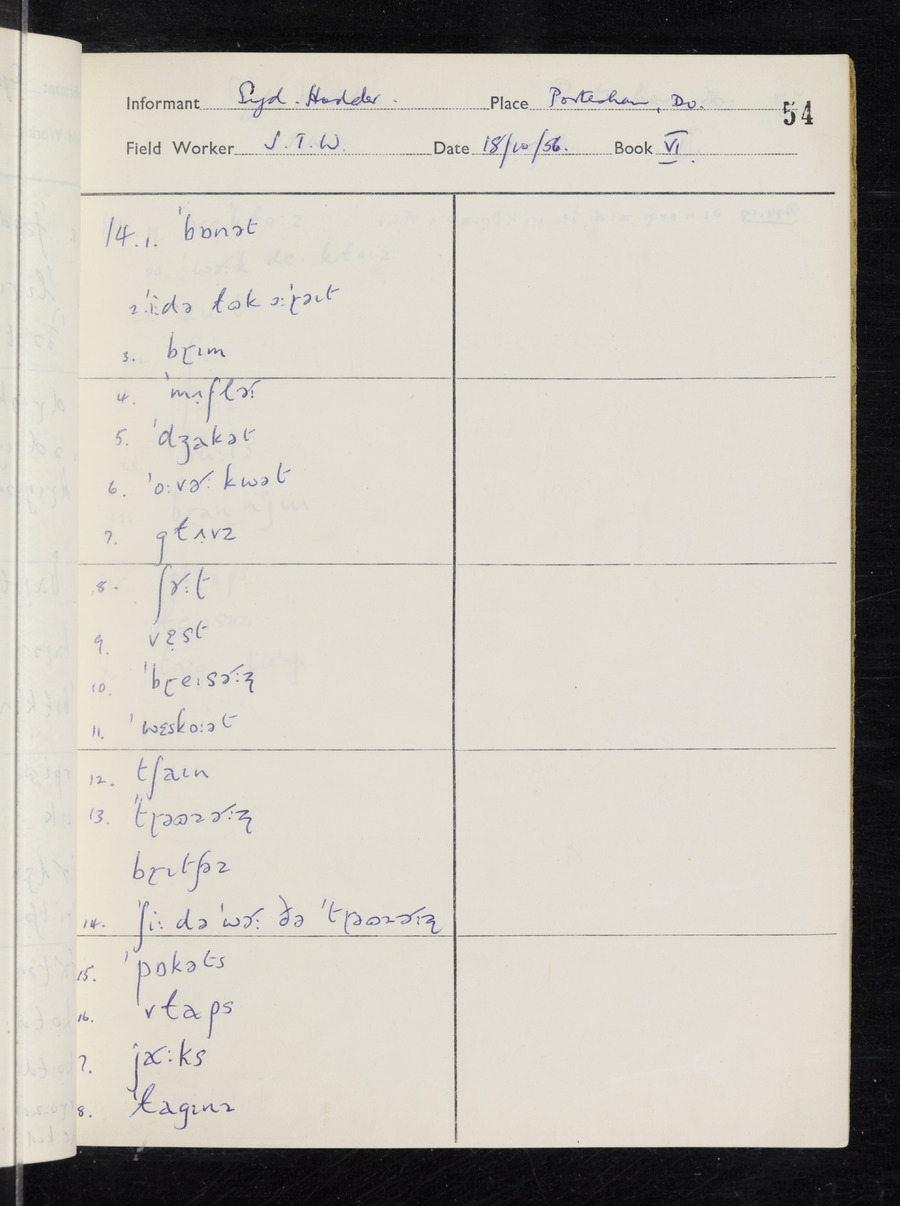 Informant Syd. Hodder. Place Portesham, Do. 54
Field Worker S.T.W. Date 18/10/56. Book VI.
14.1. ˈbɒnət
3. bɽɪm
4. ˈmʌ̣flɚː
5. ˈdʒakət
6. ˈoːvɚː kwət
7. gɫʌvz
8. ʃɚːt
9. vɛ̣st
10. ˈbɽeɪsɚːʐ
11. ˈwɛskoːət
12. tʃaɪn
13. ˈtɽəʊzɚːʐ
bɽɪtʃəz
14. ˈʃiː də ˈwɚː ðə ˈtɽəʊzɚːʐ
15. ˈpɒkəts
16. vɫaps
7. jɚːks
8. ˈɫagɪnz